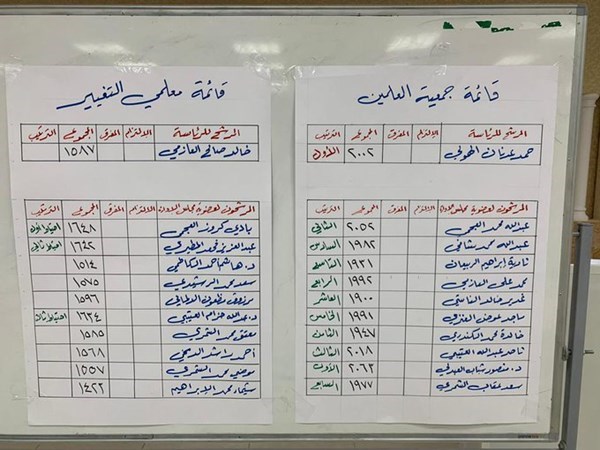 قائمة جمعية المعلمين
المرشح للرئاسة الالتزام المفرق المجموع الترتيب
حمد عدنان الهولي ٢٠٠٢ الأول
المرشحون لعضوية مجلس الإدارة الالتزام المفرق المجموع الترتيب
عبدالله محمد العجمي ٢٠٥٢ الثاني
عبدالله محمد ١٩٨٢ السادس
نادية إبراهيم الربيعان ١٩٢١ التاسع
محمد علي العازمي ١٩٩٢ الرابع
غدير خالد ١٩٠٠ العاشر
ماجد عوض العنزي ١٩٩١ الخامس
خالدة محمد الكندري ١٩٤٧ الثامن
ناصر عبدالله العتيبي ٢٠١٨ الثالث
د. منصور شباب العبدلي ٢٠٦٣ الأول
سعد عقاب الشمري ١٩٧٧ السابع
قائمة معلمي التغيير
المرشح للرئاسة الالتزام المفرق المجموع الترتيب
خالد صالح العازمي ١٥٨٧
المرشحون لعضوية مجلس الإدارة الالتزام المفرق المجموع الترتيب
بادي كروز العجمي ١٦٤٨ احتياط أول
عبدالعزيز فهد المطيري ١٦٤٢ احتياط ثاني
د. هاشم أحمد الكاظمي ١٥١٤
سعد محمد الرشيدي ١٥٧٥
مرزوق ١٥٩٦
د. عبدالله هزام العتيبي ١٦٣٤ احتياط ثالث
معتق محمد الشمري ١٥٨٥
أحمد راشد ١٥٦٨
موضي محمد الشمري ١٥٥٧
شيماء محمد الإبراهيم ١٤٢٢